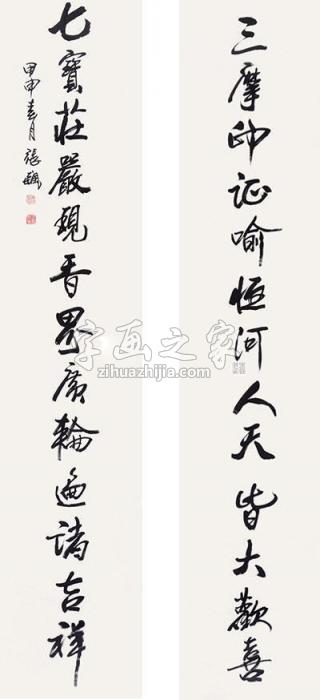 三摩印证喻恒河人天皆大歡喜
七寳莊嚴現香界廣輪遍諸吉祥
甲申春月 張飆
字画之家
zihuazhijia.com